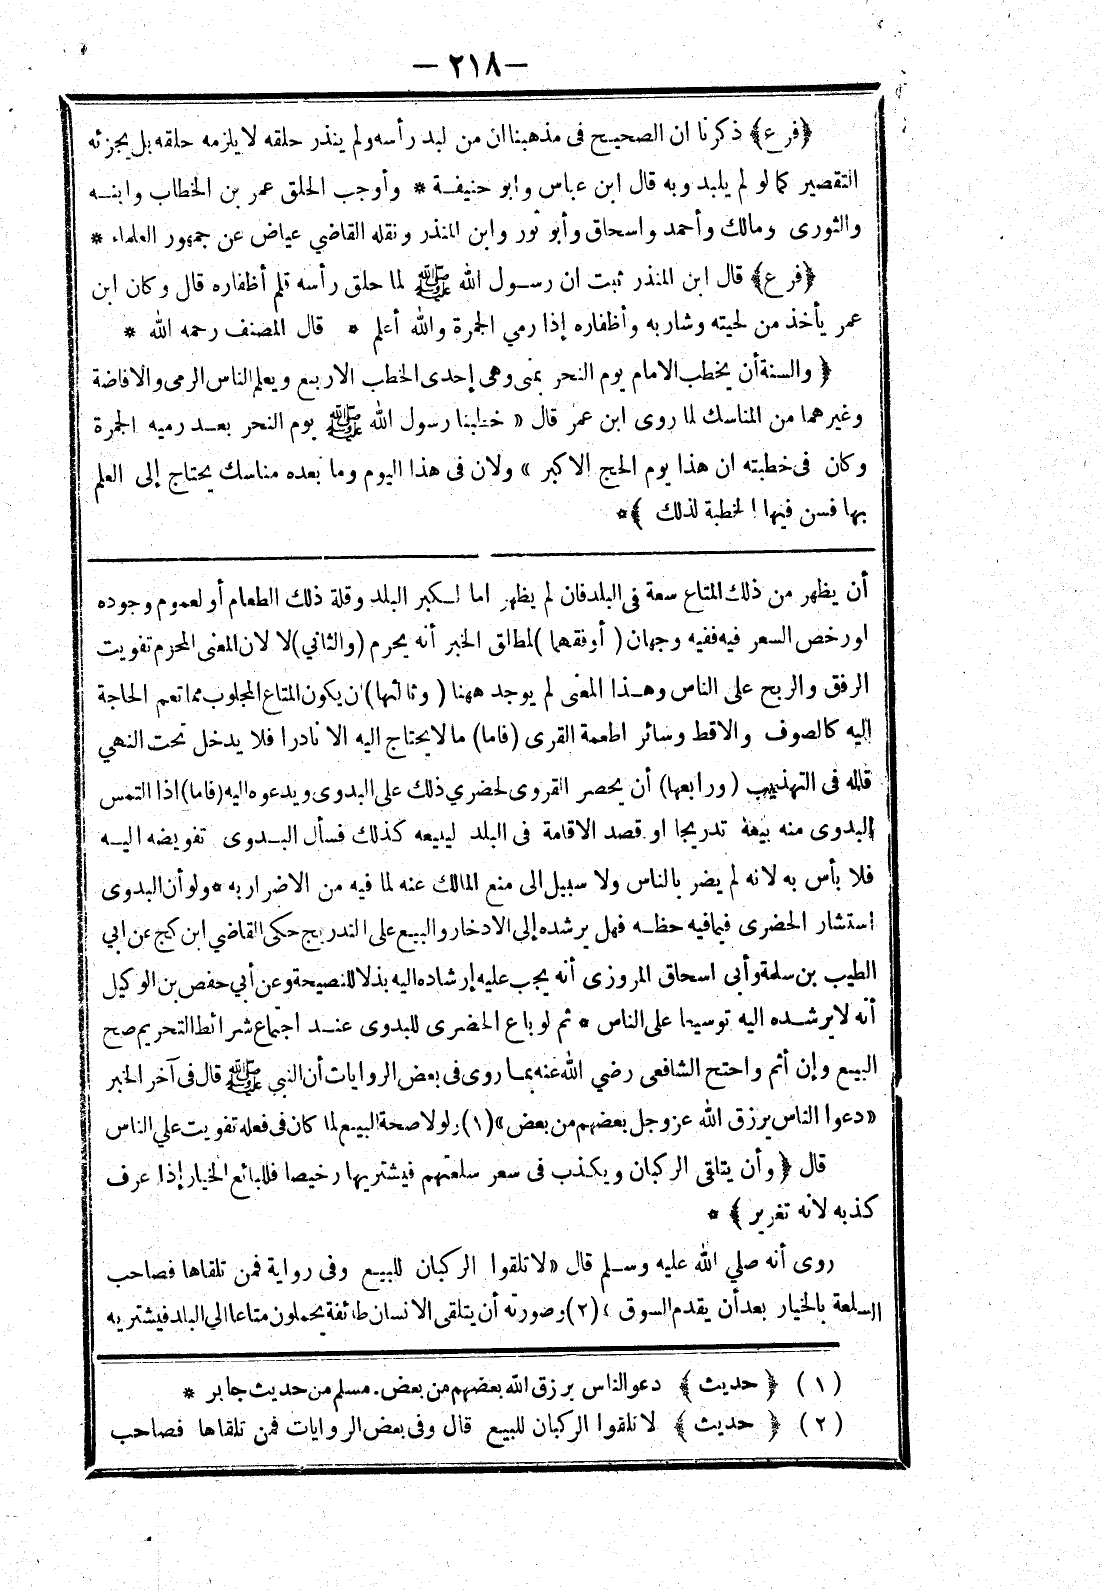 — ٢١٨ —
﴿فرع﴾ ذكرنا ان الصحيح فى مذهبنا ان من لبد رأسه ولم ينذر حلقه لا يلزمه حلقه بل يجزئه
التقصير كما لو لم يلبد وبه قال ابن عباس وابو حنيفة * وأوجب الحلق عمر بن الخطاب وابنه
والثورى ومالك وأحمد واسحاق وأبو ثور وابن المنذر ونقله القاضي عياض عن جمهور العلماء *
﴿فرع﴾ قال ابن المنذر ثبت ان رسول الله ﷺ لما حلق رأسه قلم أظفاره قال وكان ابن
عمر يأخذ من لحيته وشاربه وأظفاره إذا رمي الجمرة والله أعلم * قال المصنف رحمه الله *
﴿ والسنة أن يخطب الامام يوم النحر بمنى وهى إحدى الخطب الاربع ويعلم الناس الرمى والافاضة
وغيرهما من المناسك لما روى ابن عمر قال « خطبنا رسول الله ﷺ يوم النحر بعد رميه الجمرة
وكان فى خطبته ان هذا يوم الحج الاكبر » ولان فى هذا اليوم وما بعده مناسك يحتاج إلى العلم
بها فسن فيها الخطبة لذلك ﴾*
أن يظهر من ذلك المتاع سعة فى البلد فان لم يظهر اما لكبر البلد وقلة ذلك الطعام أو لعموم وجوده
اورخص السعر فيه ففيه وجهان ( أوفقهما )لمطلق الخبر أنه يحرم (والثاني)لا لان المعنى المحرم تفويت
الرفق والربح على الناس وهذا المعنى لم يوجد ههنا ( وثالثها) ان يكون المتاع المجلوب مما تعم الحاجة
اليه كالصوف والاقط وسائر اطعمة القرى (فاما) مالا يحتاج اليه الا نادرا فلا يدخل تحت النهي
قاله فى التهذيب (ورابعها) أن يحصر القروى لحضري ذلك على البدوى ويدعوه اليه(فاما)اذا التمس
البدوى منه بيعه تدريجا او قصد الاقامة فى البلد ليبيعه كذلك فسأل البدوى تفويضه اليه
فلا بأس به لانه لم يضر بالناس ولا سبيل الى منع المالك عنه لما فيه من الاضرار به *ولو أن البدوى
استشار الحضرى فيما فيه حظه فهل يرشده إلى الادخار والبيع على التدريج حكى القاضي ابن كج عن ابي
الطيب بن سلمة وأبى اسحاق المروزى أنه يجب عليه إرشاده اليه بذلا للنصيحة وعن أبي حفص بن الوكيل
أنه لا يرشده اليه توسيعا على الناس * ثم لو باع الحضرى للبدوى عند اجتماع شرائط التحريم صح
البيع وإن أثم واحتج الشافعى رضي الله عنه بما روى فى بعض الروايات أن النبي ﷺ قال فى آخر الخبر
«دعوا الناس يرزق الله عز وجل بعضهم من بعض»(١)ولولا صحة البيع لما كان فى فعله تفويت علي الناس
قال ﴿ وأن يتلقى الركبان ويكذب فى سعر سلعتهم فيشتريها رخيصا فللبائع الخيار إذا عرف
كذبه لانه تغرير ﴾ *
روى أنه صلي الله عليه وسلم قال «لا تلقوا الركبان للبيع وفى رواية فمن تلقاها فصاحب
السلعة بالخيار بعد أن يقدم السوق »(٢)وصورته أن يتلقى الانسان طائفة يحملون متاعا الي البلد فيشتريه
(١) ﴿ حديث ﴾ دعو الناس يرزق الله بعضهم من بعض. مسلم من حديث جابر *
(٢) ﴿ حديث ﴾ لا تلقوا الركبان للبيع قال وفى بعض الروايات فمن تلقاها فصاحب